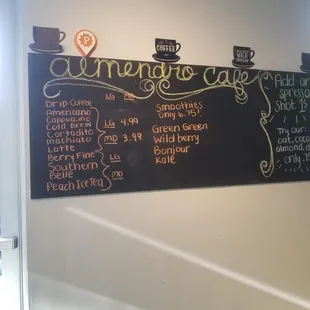 almendro cafe
LG MD
Drip Coffee
Americano
Cappuccino
Cold Brew
Cortadito
machiato
Latte
Berry Fine
Southern
Belle
Peach Ice Tea
LG 4.99
MD 3.99
LG
MD
Smoothies
only 6.75!
Green Green
Wild berry
Bonjour
Kale
Add an
Shot
Try our
only